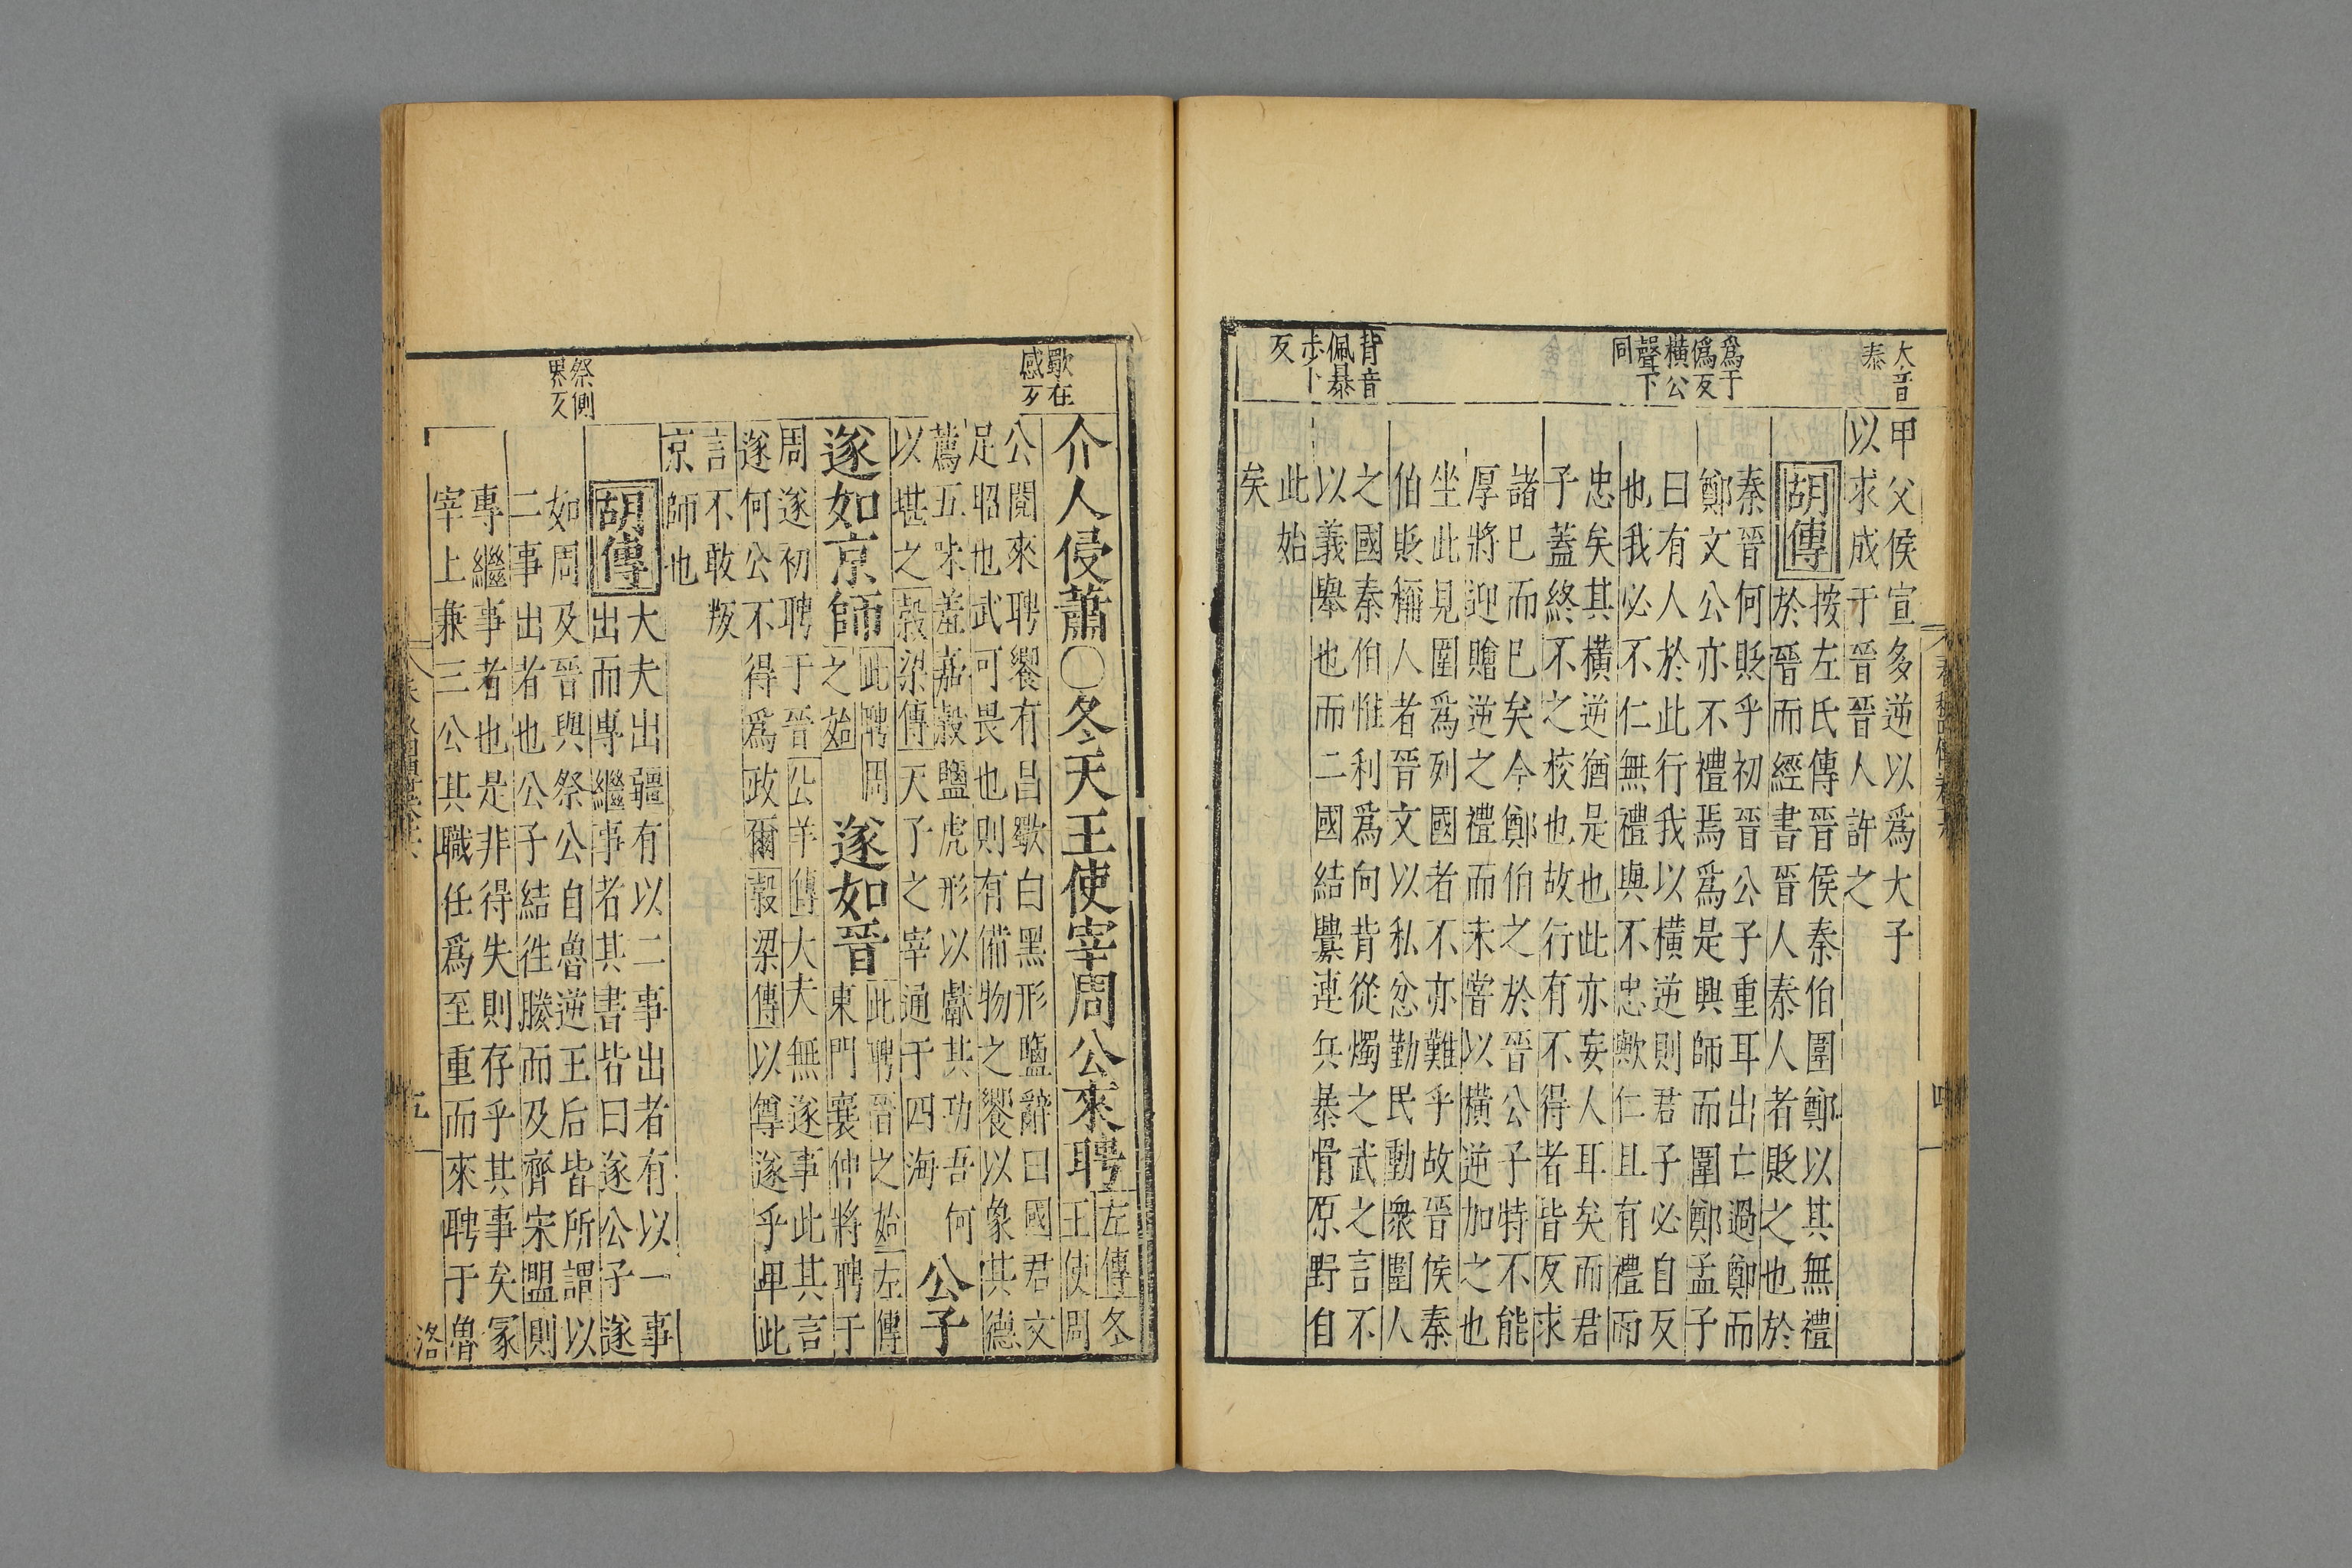 大音
泰
爲于
僞反
橫公
聲下
同
背音
佩暴
步卜
反
甲父侯宣多逆以爲大子
以求成于晉晉人許之
胡傳
按左氏傳晉侯秦伯圍鄭以其無禮
於晉而經書晉人秦人者貶之也於
秦晉何貶乎初晉公子重耳出亡過鄭而
鄭文公亦不禮焉爲是興師而圍鄭孟子
曰有人於此行我以橫逆則君子必自反
也我必不仁無禮與不忠歟仁且有禮而
忠矣其橫逆猶是也此亦妄人耳矣而君
子蓋終不之校也故行有不得者皆反求
諸已而已矣今鄭伯之於晉公子特不能
厚將迎贈逆之禮而未嘗以橫逆加之也
坐此見圍爲列國者不亦難乎故晉侯秦
伯貶稱人者晉文以私忿勤民動衆圍人
之國秦伯惟利爲向背從燭之武之言不
以義舉也而二國結釁連兵暴骨原野自
此始
矣
歜在
感反
祭側
界反
介人侵蕭○冬天王使宰周公來聘
左傳冬
王使周
公閱來聘饗有昌歜白黑形鹽辭曰國君文
足昭也武可畏也則有備物之饗以象其德
薦五味羞嘉穀鹽虎形以獻其功吾何
以堪之穀梁傳天子之宰通于四海
公子
遂如京師
此聘周
之始
遂如晉
此聘晉之始左傳
東門襄仲將聘于
周遂初聘于晉公羊傳大夫無遂事此其言
遂何公不得爲政爾穀梁傳以尊遂乎卑此
言不敢叛
京師也
胡傳
大夫出疆有以二事出者有以一事
出而專繼事者其書皆曰遂公子遂
如周及晉與祭公自魯逆王后皆所謂以
二事出者也公子結往媵而及齊宋盟則
專繼事者也是非得失則存乎其事矣冢
宰上兼三公其職任爲至重而來聘于魯
洛